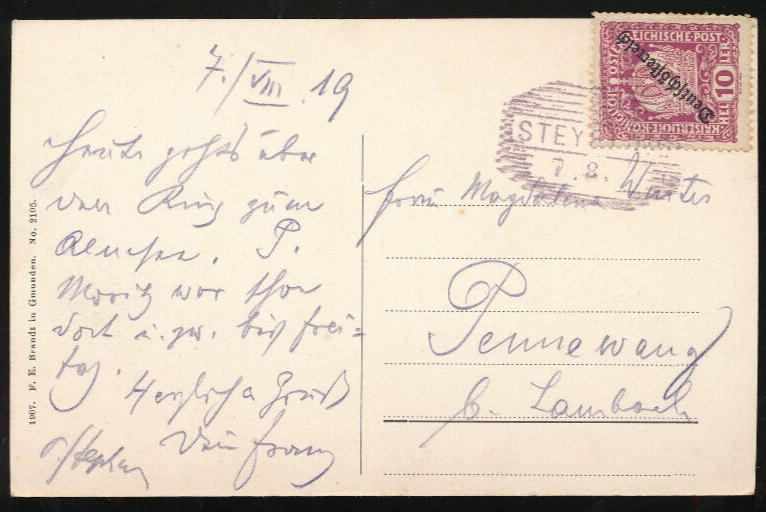 7./VIII. 19
Heute geht's über
den Ring zum
Almsee. P.
Moritz war schon
dort u. zw. bis Frei=
tag.
Herzliche Grüße
Dein Franz
P. Stephan
Frau Magdalena Winter
Pennewang
b. Lambach
1907. F. E. Brandt in Gmunden. No. 2105.
STEY
7. 8.
KAISERLICHE KÖNIGLICHE ÖSTERREICHISCHE POST
10
HELLER
Deutschösterreich